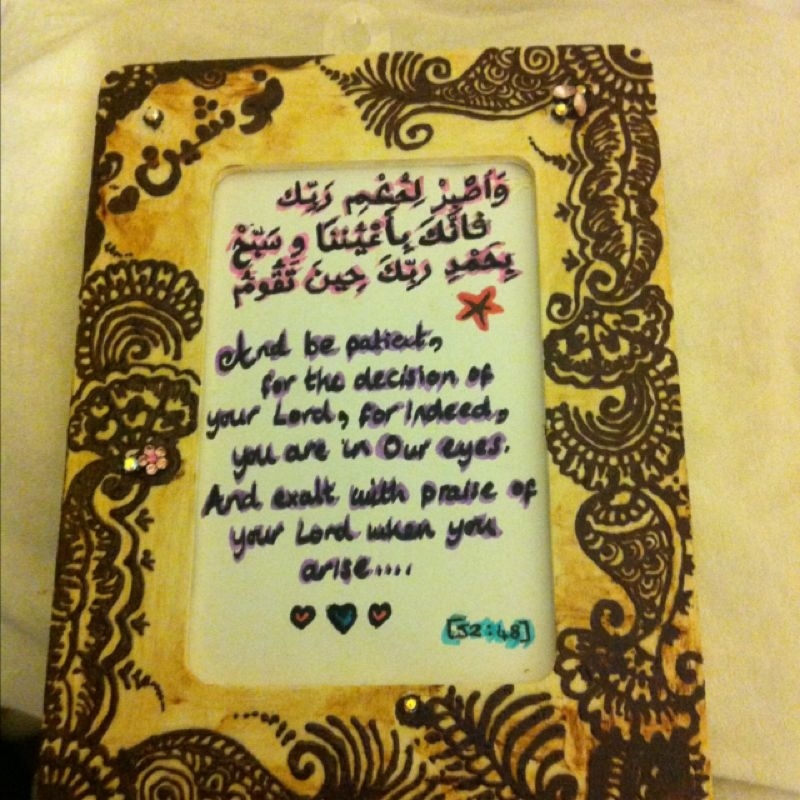 نوشين
وَاصْبِرْ لِحُكْمِ رَبِّكَ
فَإِنَّكَ بِأَعْيُنِنَا وَسَبِّحْ
بِحَمْدِ رَبِّكَ حِينَ تَقُومُ
And be patient,
for the decision of
your Lord, for indeed,
you are in Our eyes.
And exalt with praise of
your Lord when you
arise....
[52:48]